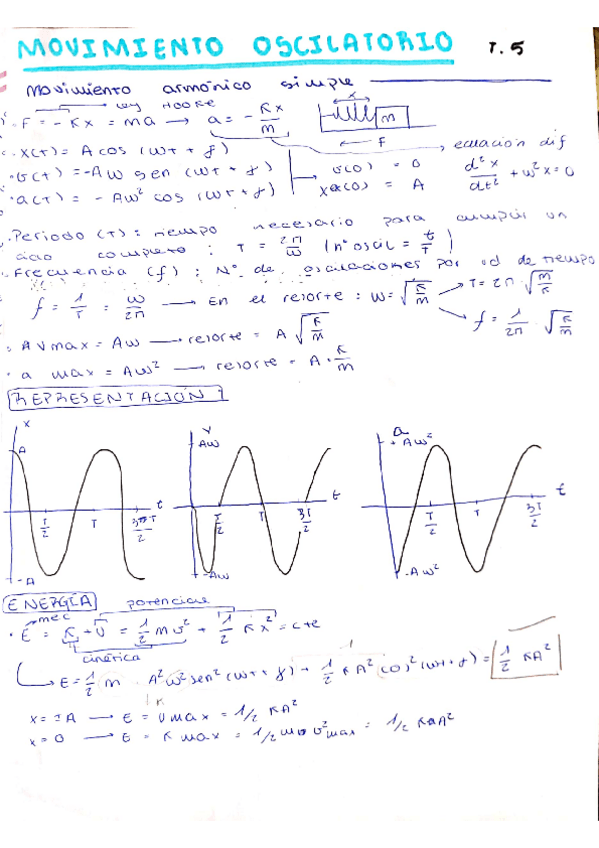 MOVIMIENTO OSCILATORIO T.5
Movimiento armónico simple
ley HOOKE
· F = - Kx = ma → a = - Kx/m
x
m
F
· x(t) = A cos (wt + f)
· v(t) = -Aw sen (wt + f)
· a(t) = - Aw² cos (wt + f)
v(0) = 0
x(0) = A
ecuación dif
d²x/dt² + w²x = 0
· Periodo (T): tiempo necesario para cumplir un
ciclo completo : T = 2π/w (nº oscil = t/T)
· Frecuencia (f) : Nº de oscilaciones por ud de tiempo
f = 1/T = w/2π → En el resorte : w = √K/m
T = 2π · √m/K
f = 1/2π √K/m
· A v max = Aw → resorte = A √K/m
· a max = Aw² → resorte = A · K/m
REPRESENTACIÓN
x
A
-A
T/2
T
3T/2
t
v
Aw
-Aw
T/2
T
3T/2
t
a
+ Aw²
- Aw²
T/2
T
3T/2
t
ENERGÍA
potencial
mec
· E = K + U = 1/2 m v² + 1/2 K x² = cte
cinética
E = 1/2 m · A²w² sen² (wt + f) + 1/2 K A² cos² (wt + f) = 1/2 KA²
x = ±A → E = U max = 1/2 KA²
x = 0 → E = K max = 1/2 m v²max = 1/2 KA²